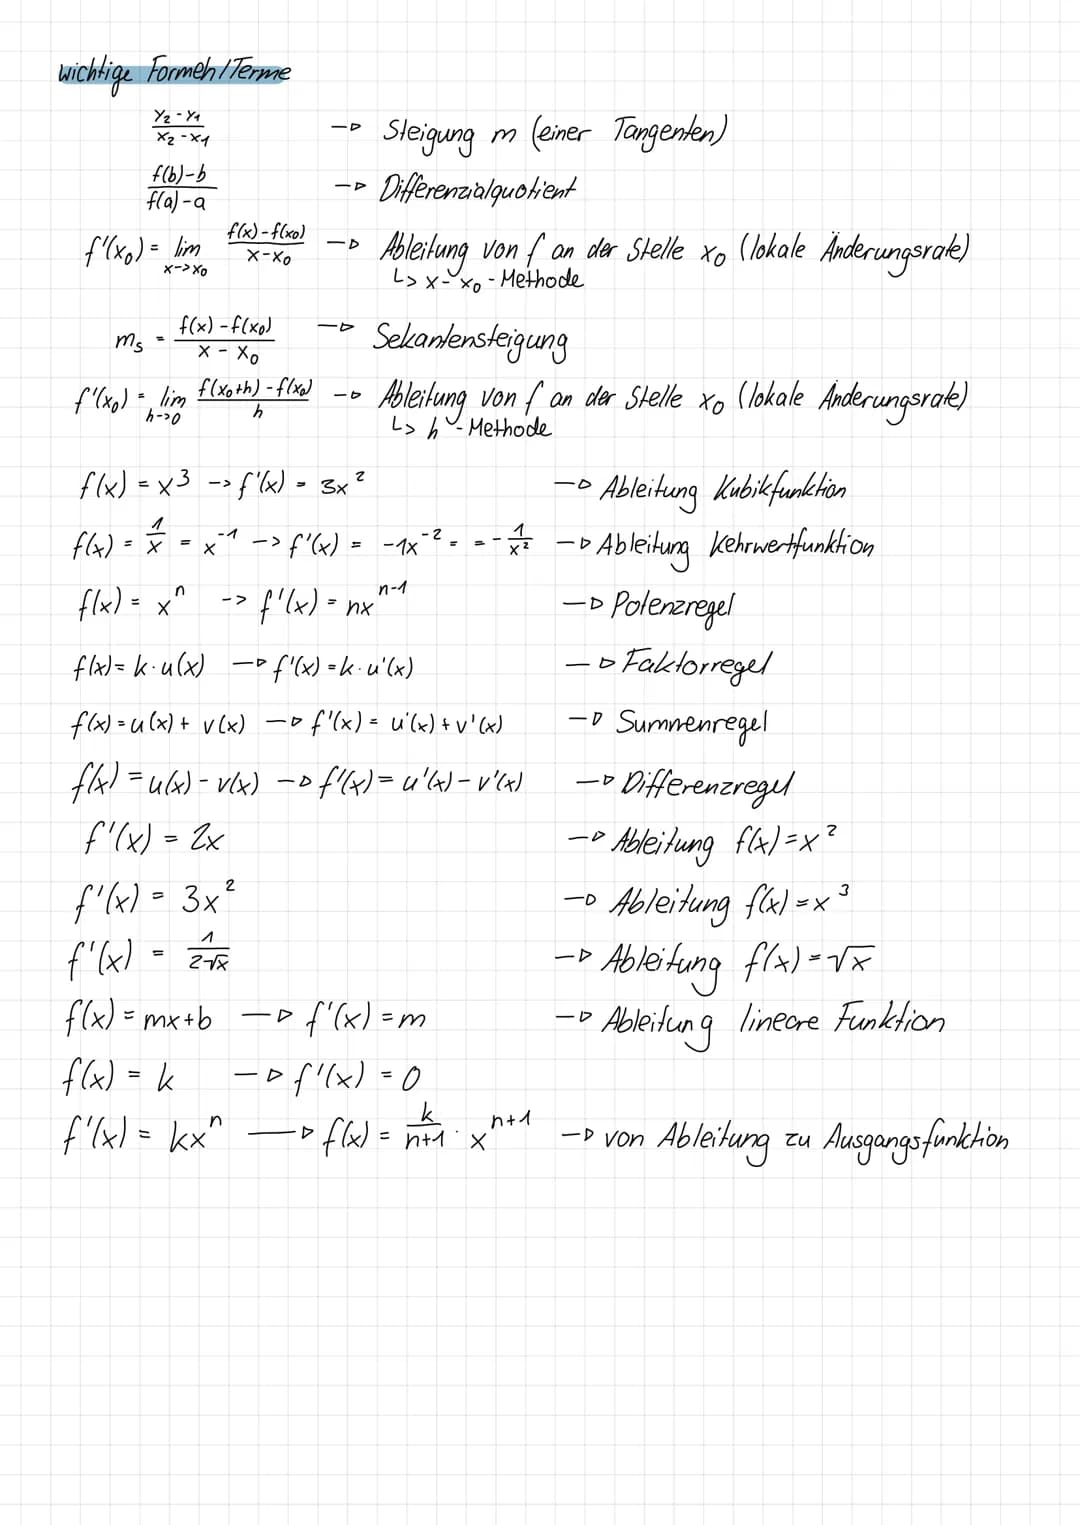 wichtige Formeln/Terme
y₂-y₁ / x₂-x₁ → Steigung m (einer Tangenten)
f(b)-b / f(a)-a → Differenzialquotient
f'(x₀) = lim x->x₀ f(x)-f(x₀) / x-x₀ → Ableitung von f an der Stelle x₀ (lokale Änderungsrate)
↳ x-x₀-Methode
mₛ = f(x)-f(x₀) / x-x₀ → Sekantensteigung
f'(x₀) = lim h->0 f(x₀+h)-f(x₀) / h → Ableitung von f an der Stelle x₀ (lokale Änderungsrate)
↳ h-Methode
f(x) = x³ -> f'(x) = 3x² → Ableitung Kubikfunktion
f(x) = 1/x = x⁻¹ -> f'(x) = -1x⁻² = = -1/x² → Ableitung Kehrwertfunktion
f(x) = xⁿ -> f'(x) = nxⁿ⁻¹ → Potenzregel
f(x) = k·u(x) → f'(x) = k·u'(x) → Faktorregel
f(x) = u(x) + v(x) → f'(x) = u'(x) + v'(x) → Summenregel
f(x) = u(x) - v(x) → f'(x) = u'(x) - v'(x) → Differenzregel
f'(x) = 2x → Ableitung f(x) = x²
f'(x) = 3x² → Ableitung f(x) = x³
f'(x) = 1/2√x → Ableitung f(x) = √x
f(x) = mx+b → f'(x) = m → Ableitung lineare Funktion
f(x) = k → f'(x) = 0
f'(x) = kxⁿ → f(x) = k/n+1 · xⁿ⁺¹ → von Ableitung zu Ausgangsfunktion